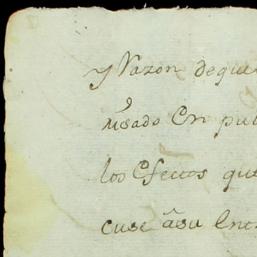 y Razon de que
usado En pu
los Efectos que
cuse a su Ent